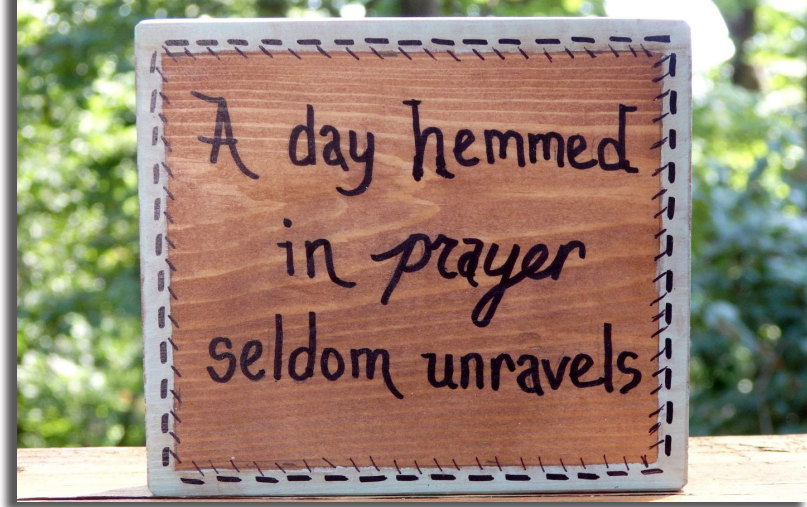 A day hemmed
in prayer
seldom unravels